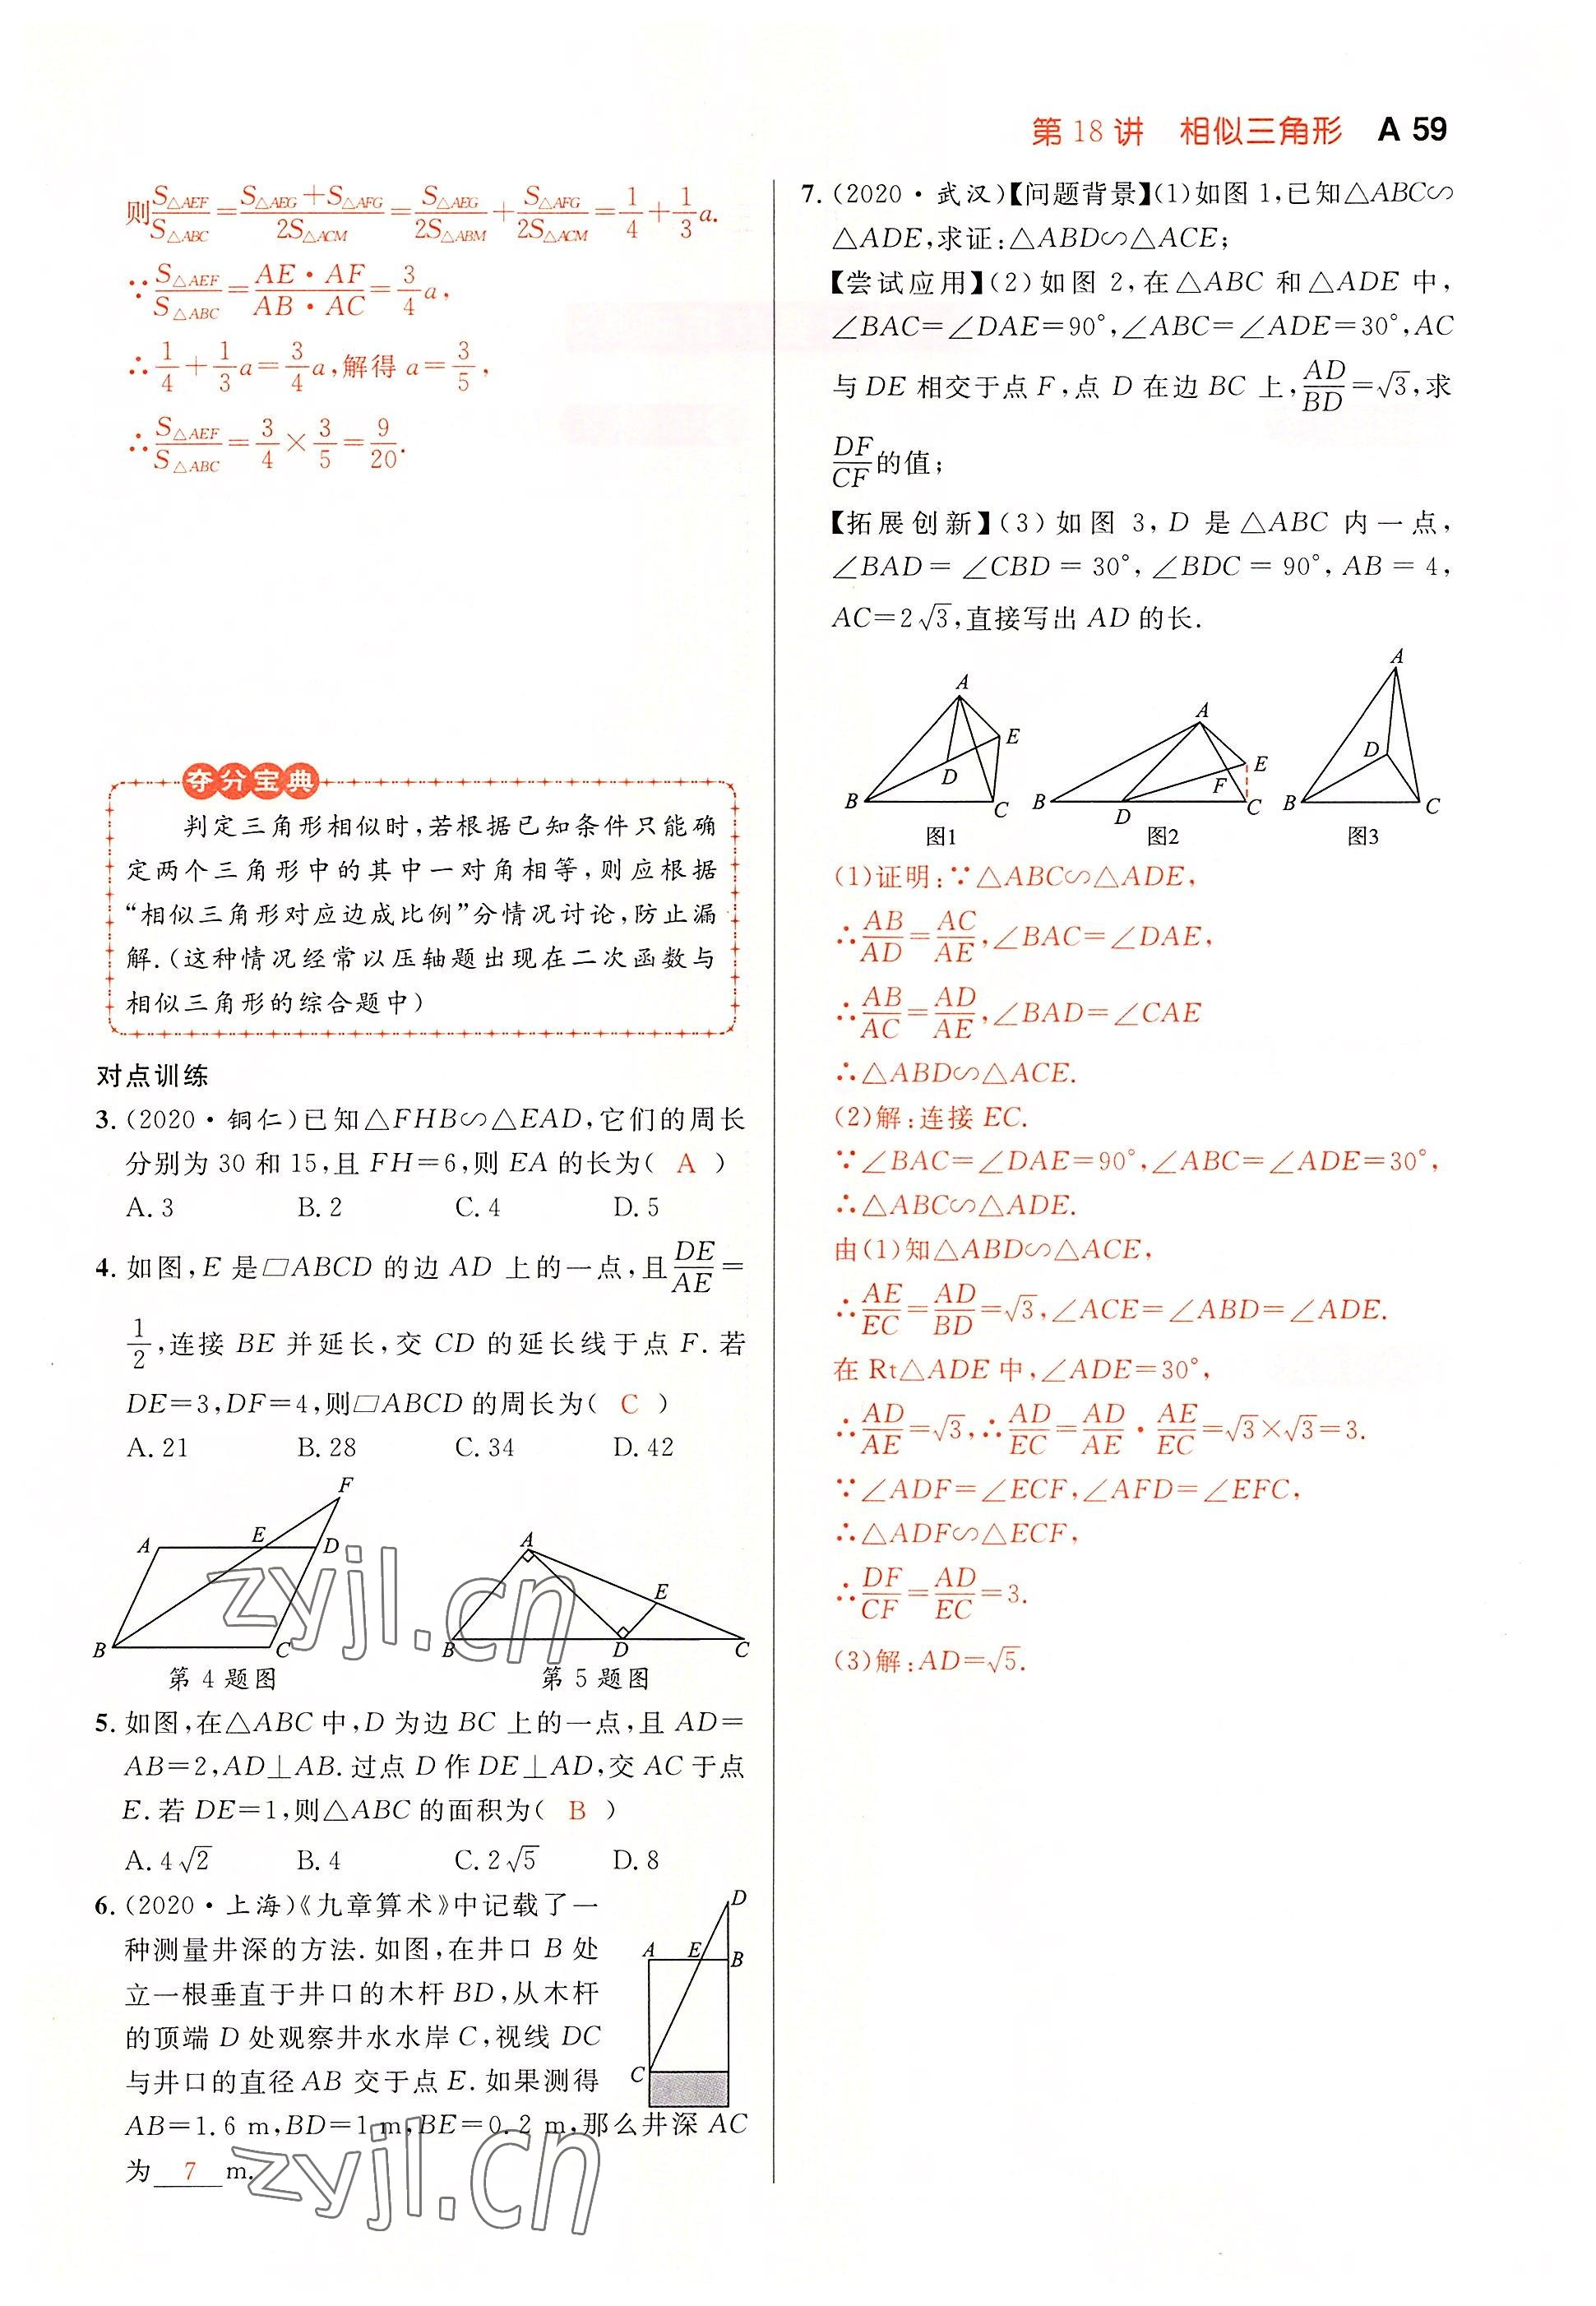 第 18 讲 相似三角形 A 59
则S△AEF/S△ABC=(S△AEG+S△AFG)/2S△ACM=S△AEG/2S△ABM+S△AFG/2S△ACM=1/4+1/3a.
∵S△AEF/S△ABC=AE·AF/AB·AC=3/4a,
∴1/4+1/3a=3/4a,解得 a=3/5,
∴S△AEF/S△ABC=3/4×3/5=9/20.
夺分宝典
判定三角形相似时,若根据已知条件只能确
定两个三角形中的其中一对角相等,则应根据
“相似三角形对应边成比例”分情况讨论,防止漏
解.(这种情况经常以压轴题出现在二次函数与
相似三角形的综合题中)
对点训练
3.(2020·铜仁)已知△FHB∽△EAD,它们的周长
分别为 30 和 15,且 FH=6,则 EA 的长为( A )
A. 3 B. 2 C. 4 D. 5
4. 如图,E 是▱ABCD 的边 AD 上的一点,且DE/AE=
1/2,连接 BE 并延长,交 CD 的延长线于点 F. 若
DE=3,DF=4,则▱ABCD 的周长为( C )
A. 21 B. 28 C. 34 D. 42
F
A E D
B C
第 4 题图
A
E
B D C
第 5 题图
5. 如图,在△ABC 中,D 为边 BC 上的一点,且 AD=
AB=2,AD⊥AB. 过点 D 作 DE⊥AD,交 AC 于点
E. 若 DE=1,则△ABC 的面积为( B )
A. 4√2 B. 4 C. 2√5 D. 8
6.(2020·上海)《九章算术》中记载了一
种测量井深的方法. 如图,在井口 B 处
立一根垂直于井口的木杆 BD,从木杆
的顶端 D 处观察井水水岸 C,视线 DC
与井口的直径 AB 交于点 E. 如果测得
AB=1.6 m,BD=1 m,BE=0.2 m,那么井深 AC
为 7 m.
D
A E B
C
7.(2020·武汉)【问题背景】(1)如图 1,已知△ABC∽
△ADE,求证:△ABD∽△ACE;
【尝试应用】(2)如图 2,在△ABC 和△ADE 中,
∠BAC=∠DAE=90°,∠ABC=∠ADE=30°,AC
与 DE 相交于点 F,点 D 在边 BC 上,AD/BD=√3,求
DF/CF的值;
【拓展创新】(3)如图 3,D 是△ABC 内一点,
∠BAD=∠CBD=30°,∠BDC=90°,AB=4,
AC=2√3,直接写出 AD 的长.
A
E
D
B C
图1
A
E
F
B D C
图2
A
D
B C
图3
(1)证明:∵△ABC∽△ADE,
∴AB/AD=AC/AE,∠BAC=∠DAE,
∴AB/AC=AD/AE,∠BAD=∠CAE
∴△ABD∽△ACE.
(2)解:连接 EC.
∵∠BAC=∠DAE=90°,∠ABC=∠ADE=30°,
∴△ABC∽△ADE.
由(1)知△ABD∽△ACE,
∴AE/EC=AD/BD=√3,∠ACE=∠ABD=∠ADE.
在 Rt△ADE 中,∠ADE=30°,
∴AD/AE=√3,∴AD/EC=AD/AE·AE/EC=√3×√3=3.
∵∠ADF=∠ECF,∠AFD=∠EFC,
∴△ADF∽△ECF,
∴DF/CF=AD/EC=3.
(3)解:AD=√5.
zyjl.cn
zyjl.cn